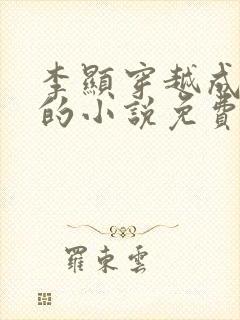 李顯穿越成
的小說免費
羅東雲